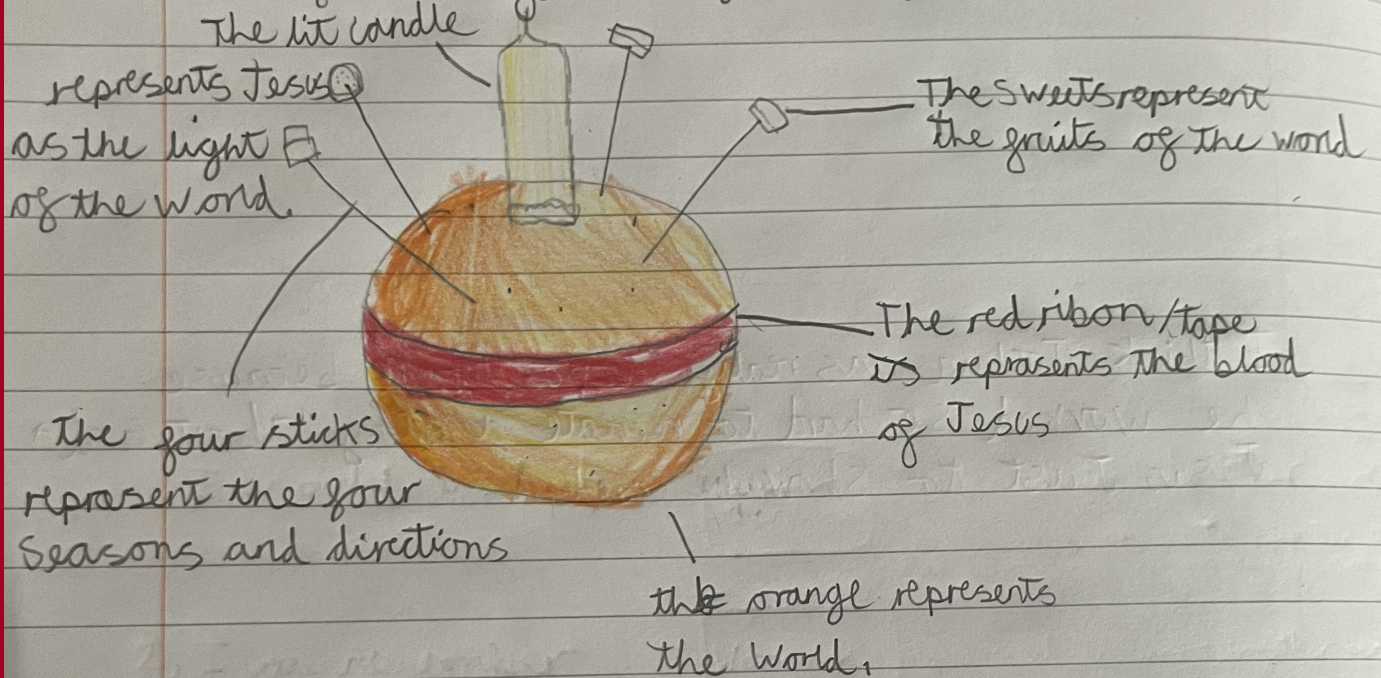 The lit candle
represents Jesus
as the light
of the world.
The sweets represent
the fruits of the world
The red ribon/tape
represents the blood
of Jesus
The four sticks
represent the four
Seasons and directions
the orange represents
the World.